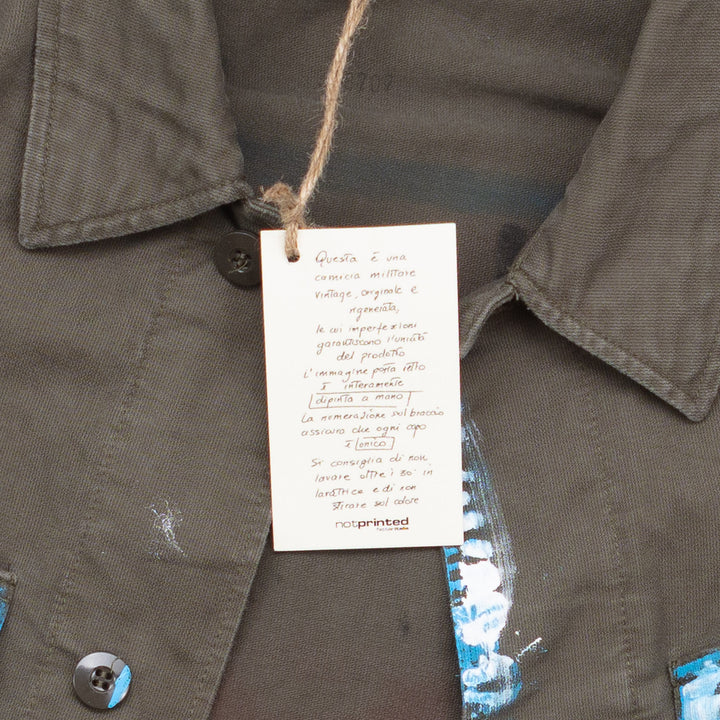 Questa è una
camicia militare
vintage, originale e
rigenerata,
le cui imperfezioni
garantiscono l'unicità
del prodotto
L'immagine posta retto
è interamente
dipinta a mano
La numerazione sul braccio
assicura che ogni capo
è unico
Si consiglia di non
lavare oltre i 30° in
lavatrice e di non
stirare sul colore
notprinted